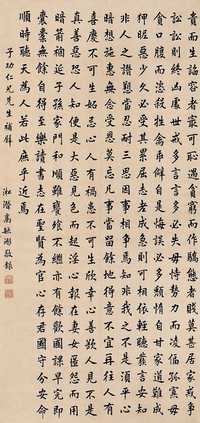 貴而生諂容者最可恥遇貧窮而作驕態者賤莫甚居家戒
訟訟則終凶處世戒多言言多必失毋恃勢而凌偪孤寡毋
貪口腹而恣殺生禽乖僻自是悔誤必多頹惰自甘家道難成
狎昵惡少久必受其累屈志老成急則可相依輕聽發言安知
非人之譖愬當忍耐三思因事相爭焉知非我之不是須平心
暗想施惠無念受恩莫忘凡事當留餘地得意不宜再往人有
喜慶不可生妬忌心人有禍患不可生欣幸心善欲人見不是
真善惡恐人知便是大惡見色而起淫心報在妻女匿怨而用
暗箭禍延子孫家門和順雖饔飧不繼亦有餘歡國課早完即
囊橐無餘自得至樂讀書志在聖賢為官心存君國守分安命
順時聽天為人若此庶乎近焉
子功仁兄先生補
高毓浵敬錄